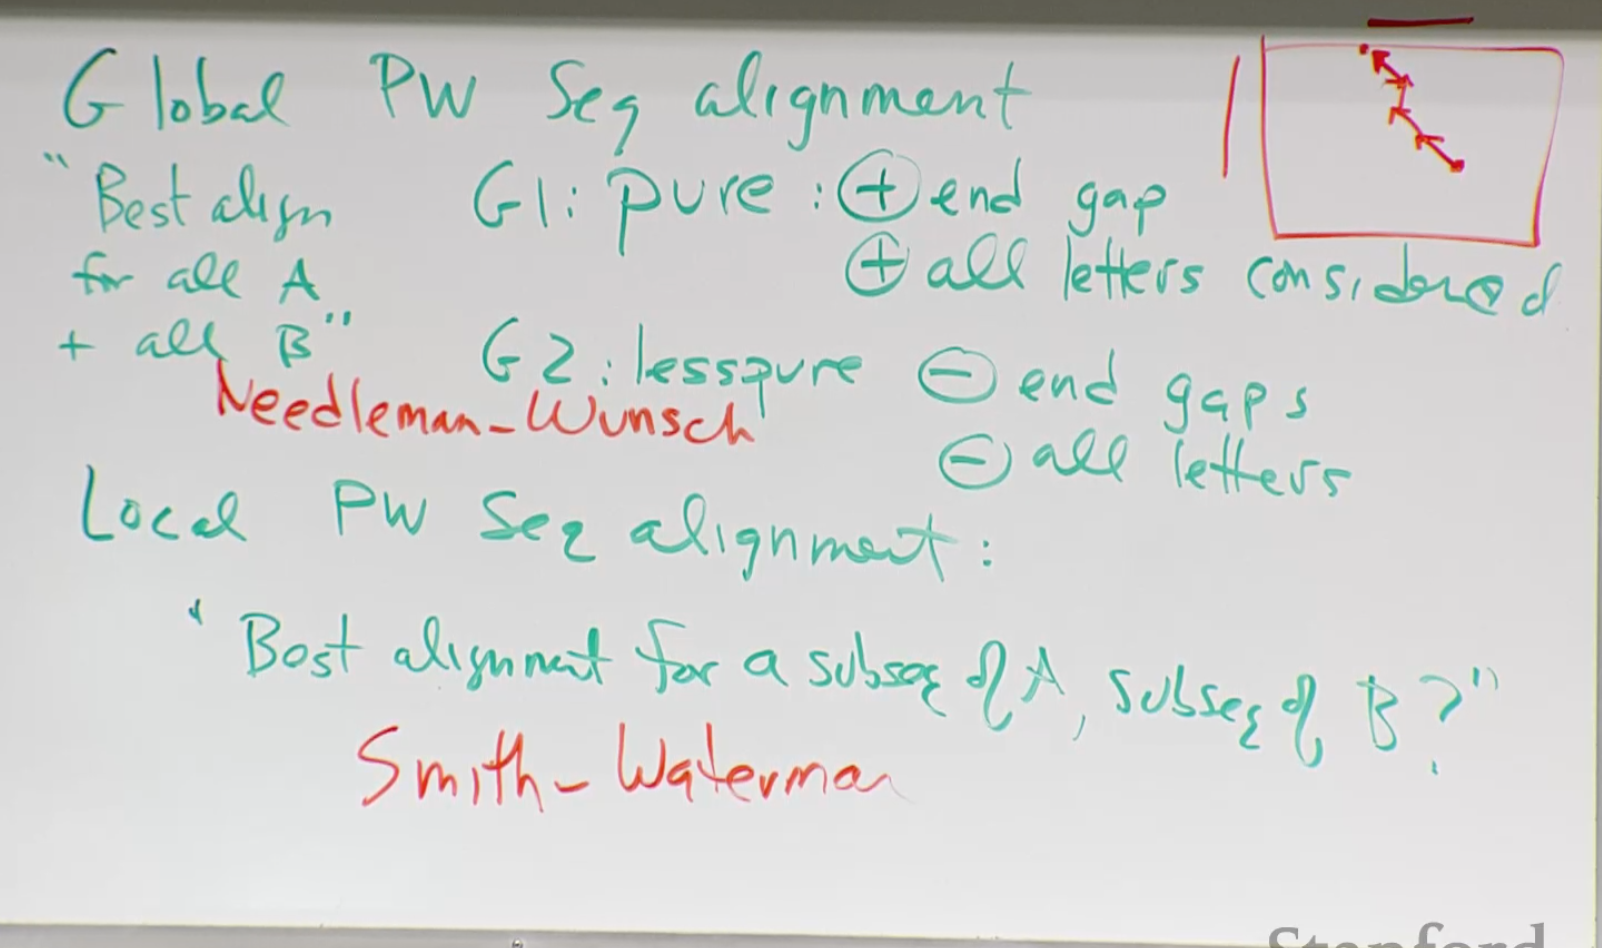 Global PW Seq alignment
"Best align
for all A
+ all B"
G1: pure : ⊕ end gap
⊕ all letters considered
G2: less pure ⊖ end gaps
⊖ all letters
Needleman-Wunsch
Local PW Seq alignment:
"Best alignment for a subseq of A, subseq of B?"
Smith-Waterman
Stanford